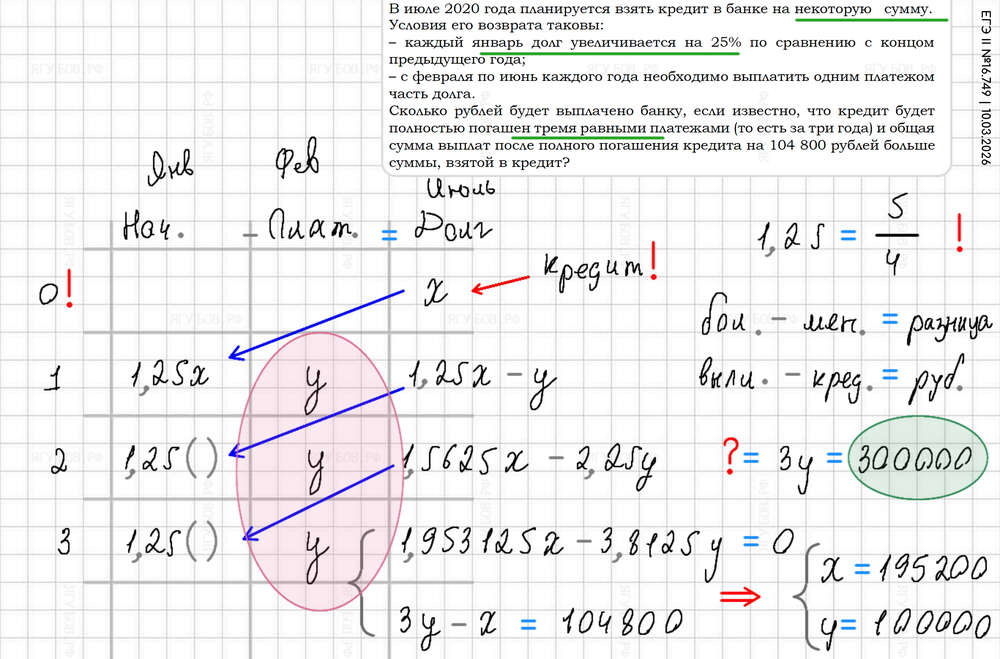 В июле 2020 года планируется взять кредит в банке на некоторую сумму.
Условия его возврата таковы:
– каждый январь долг увеличивается на 25% по сравнению с концом
предыдущего года;
– с февраля по июнь каждого года необходимо выплатить одним платежом
часть долга.
Сколько рублей будет выплачено банку, если известно, что кредит будет
полностью погашен тремя равными платежами (то есть за три года) и общая
сумма выплат после полного погашения кредита на 104 800 рублей больше
суммы, взятой в кредит?
ЕГЭ II №16.749 | 10.03.2026
Янв Фев Июль
Нач. – Плат. = Долг
1,25 = 5/4 !
0! x кредит!
бол. – мен. = разница
1 1,25x y 1,25x – y
выпл. – кред. = руб.
2 1,25( ) y 1,5625x – 2,25y
? = 3y = 300000
3 1,25( ) y 1,953125x – 3,8125y = 0
3y – x = 104800
⇒ x = 195200
y = 100000